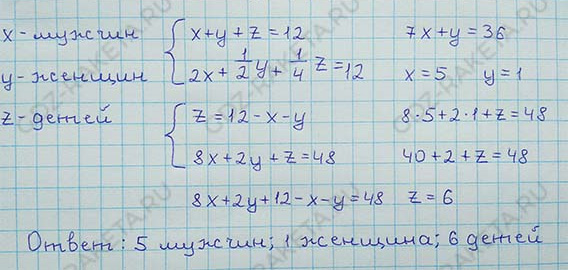 x - мужчин
y - женщин
z - детей
x + y + z = 12
2x + 1/2 y + 1/4 z = 12
z = 12 - x - y
8x + 2y + z = 48
8x + 2y + 12 - x - y = 48
7x + y = 36
x = 5 y = 1
8·5 + 2·1 + z = 48
40 + 2 + z = 48
z = 6
Ответ: 5 мужчин; 1 женщина; 6 детей
GDZ-RAKETA.RU